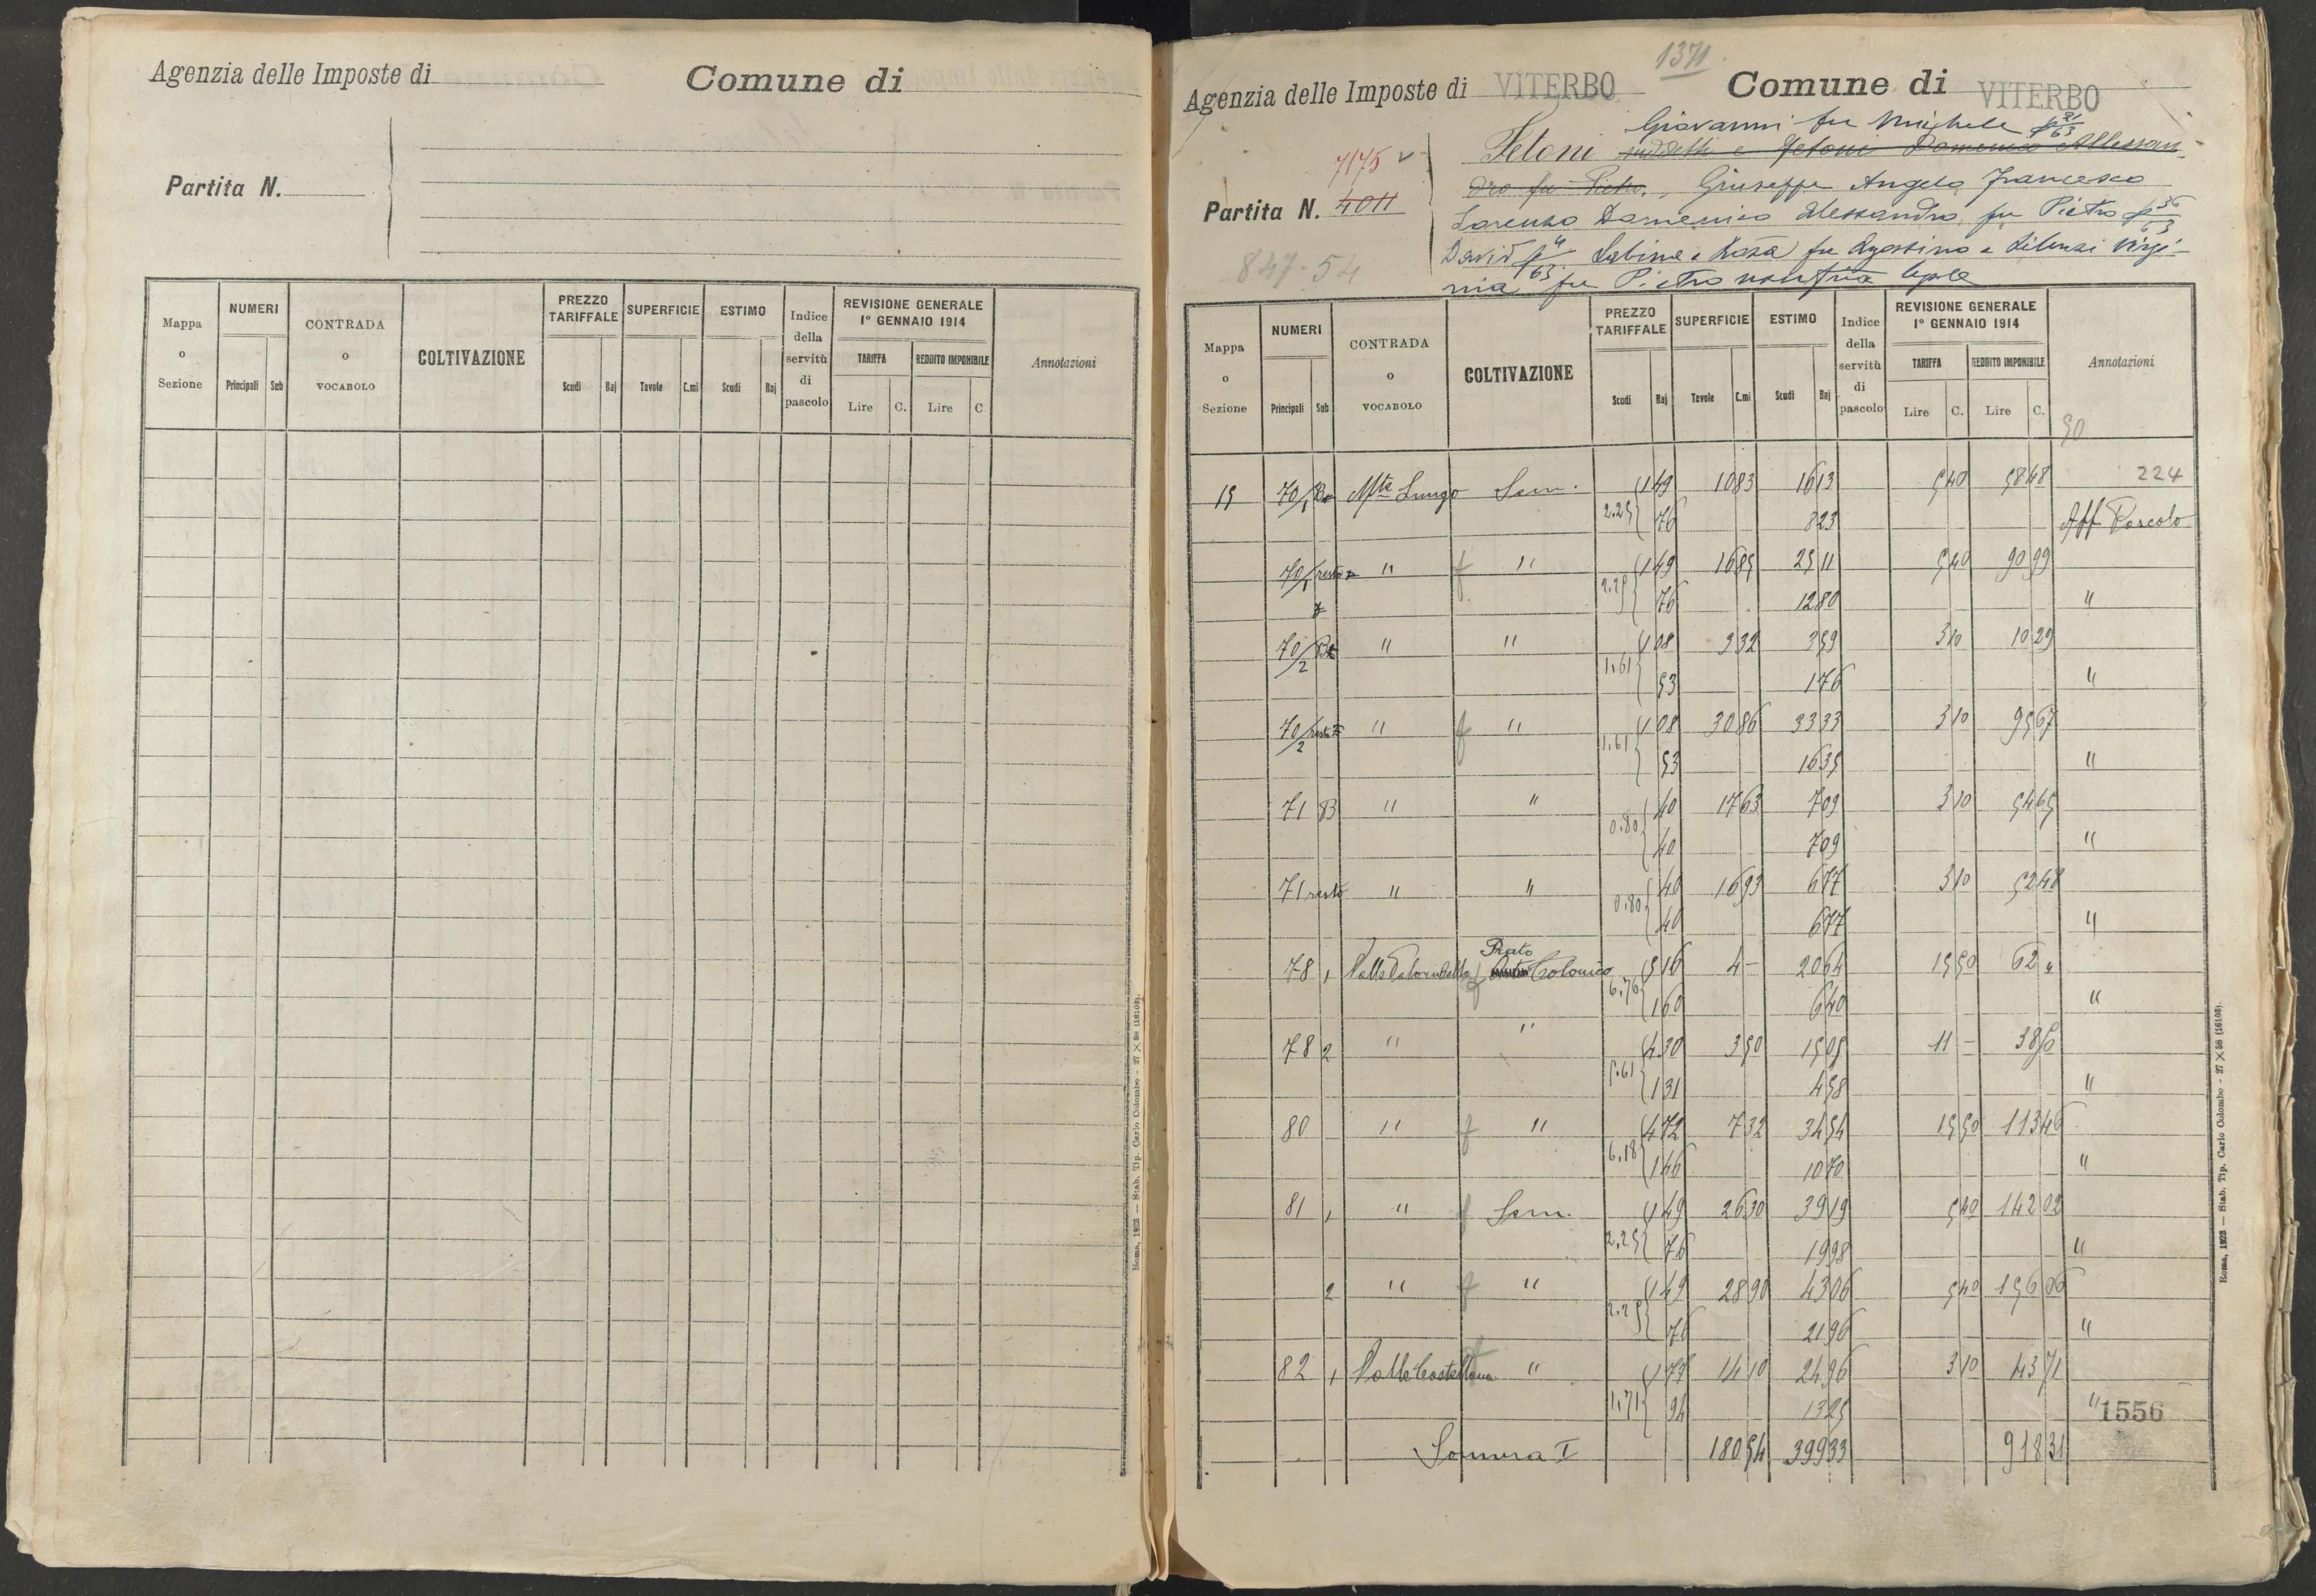 Agenzia delle Imposte di Comune di
Partita N.
Mappa o Sezione NUMERI Principali Sub CONTRADA o VOCABOLO COLTIVAZIONE PREZZO TARIFFALE Scudi Baj SUPERFICIE Tavole C.mi ESTIMO Scudi Baj Indice della servitù di pascolo REVISIONE GENERALE 1° GENNAIO 1914 TARIFFA Lire C. REDDITO IMPONIBILE Lire C Annotazioni
Roma, 1923 — Stab. Tip. Carlo Colombo - 27 × 38 (16108).
1371
Agenzia delle Imposte di VITERBO Comune di VITERBO
Giovanni fu Michele 21/63
Fetoni suddetti e Fetoni Domenico Allessan-
dro fu Pietro, Giuseppe Angelo Francesco
7175
Partita N. 4011
Lorenzo Domenico Alessandro fu Pietro 36/63
David 4/63 Sabina e Rosa fu Agostino e Virgi-
nia fu Pietro
847-54
Mappa o Sezione NUMERI Principali Sub CONTRADA o VOCABOLO COLTIVAZIONE PREZZO TARIFFALE Scudi Baj SUPERFICIE Tavole C.mi ESTIMO Scudi Baj Indice della servitù di pascolo REVISIONE GENERALE 1° GENNAIO 1914 TARIFFA Lire C. REDDITO IMPONIBILE Lire C. Annotazioni
90
15 70/1 Mte Lungo Sem. 1 49 10 83 16 13 5 40 58 48 224
2.25 76 8 23 Aff Pascolo
70/1 resto " " 1 49 16 85 25 11 5 40 90 99
2.25 76 12 80 "
70/2 " " 1 08 3 32 3 59 3 10 10 29
1.61 53 1 76 "
70/2 resto " " 1 08 30 86 33 33 3 10 95 67
1.61 53 16 35 "
71 B " " 40 17 63 7 09 3 10 54 65
0.80 40 7 09 "
71 resto " " 40 16 93 6 77 3 10 52 48
0.80 40 6 77 "
78 1 Prato Colonico 5 16 4 - 20 64 15 50 62 "
6.76 1 60 6 40 "
78 2 " " 4 30 3 50 15 05 11 - 38 50
5.61 1 31 4 58 "
80 " " 4 72 7 32 34 54 15 50 113 46
6.18 1 46 10 70 "
81 1 " Sem. 1 49 26 30 39 19 5 40 142 02
2.25 76 19 98 "
2 " " 1 49 28 90 43 06 5 40 156 06
2.25 76 21 96 "
82 1 Valle Castellana " 1 77 14 10 24 96 3 10 43 71
1.71 94 13 25 " 1556
Somma I 180 54 399 33 918 31
Roma, 1923 — Stab. Tip. Carlo Colombo - 27 × 38 (16108).